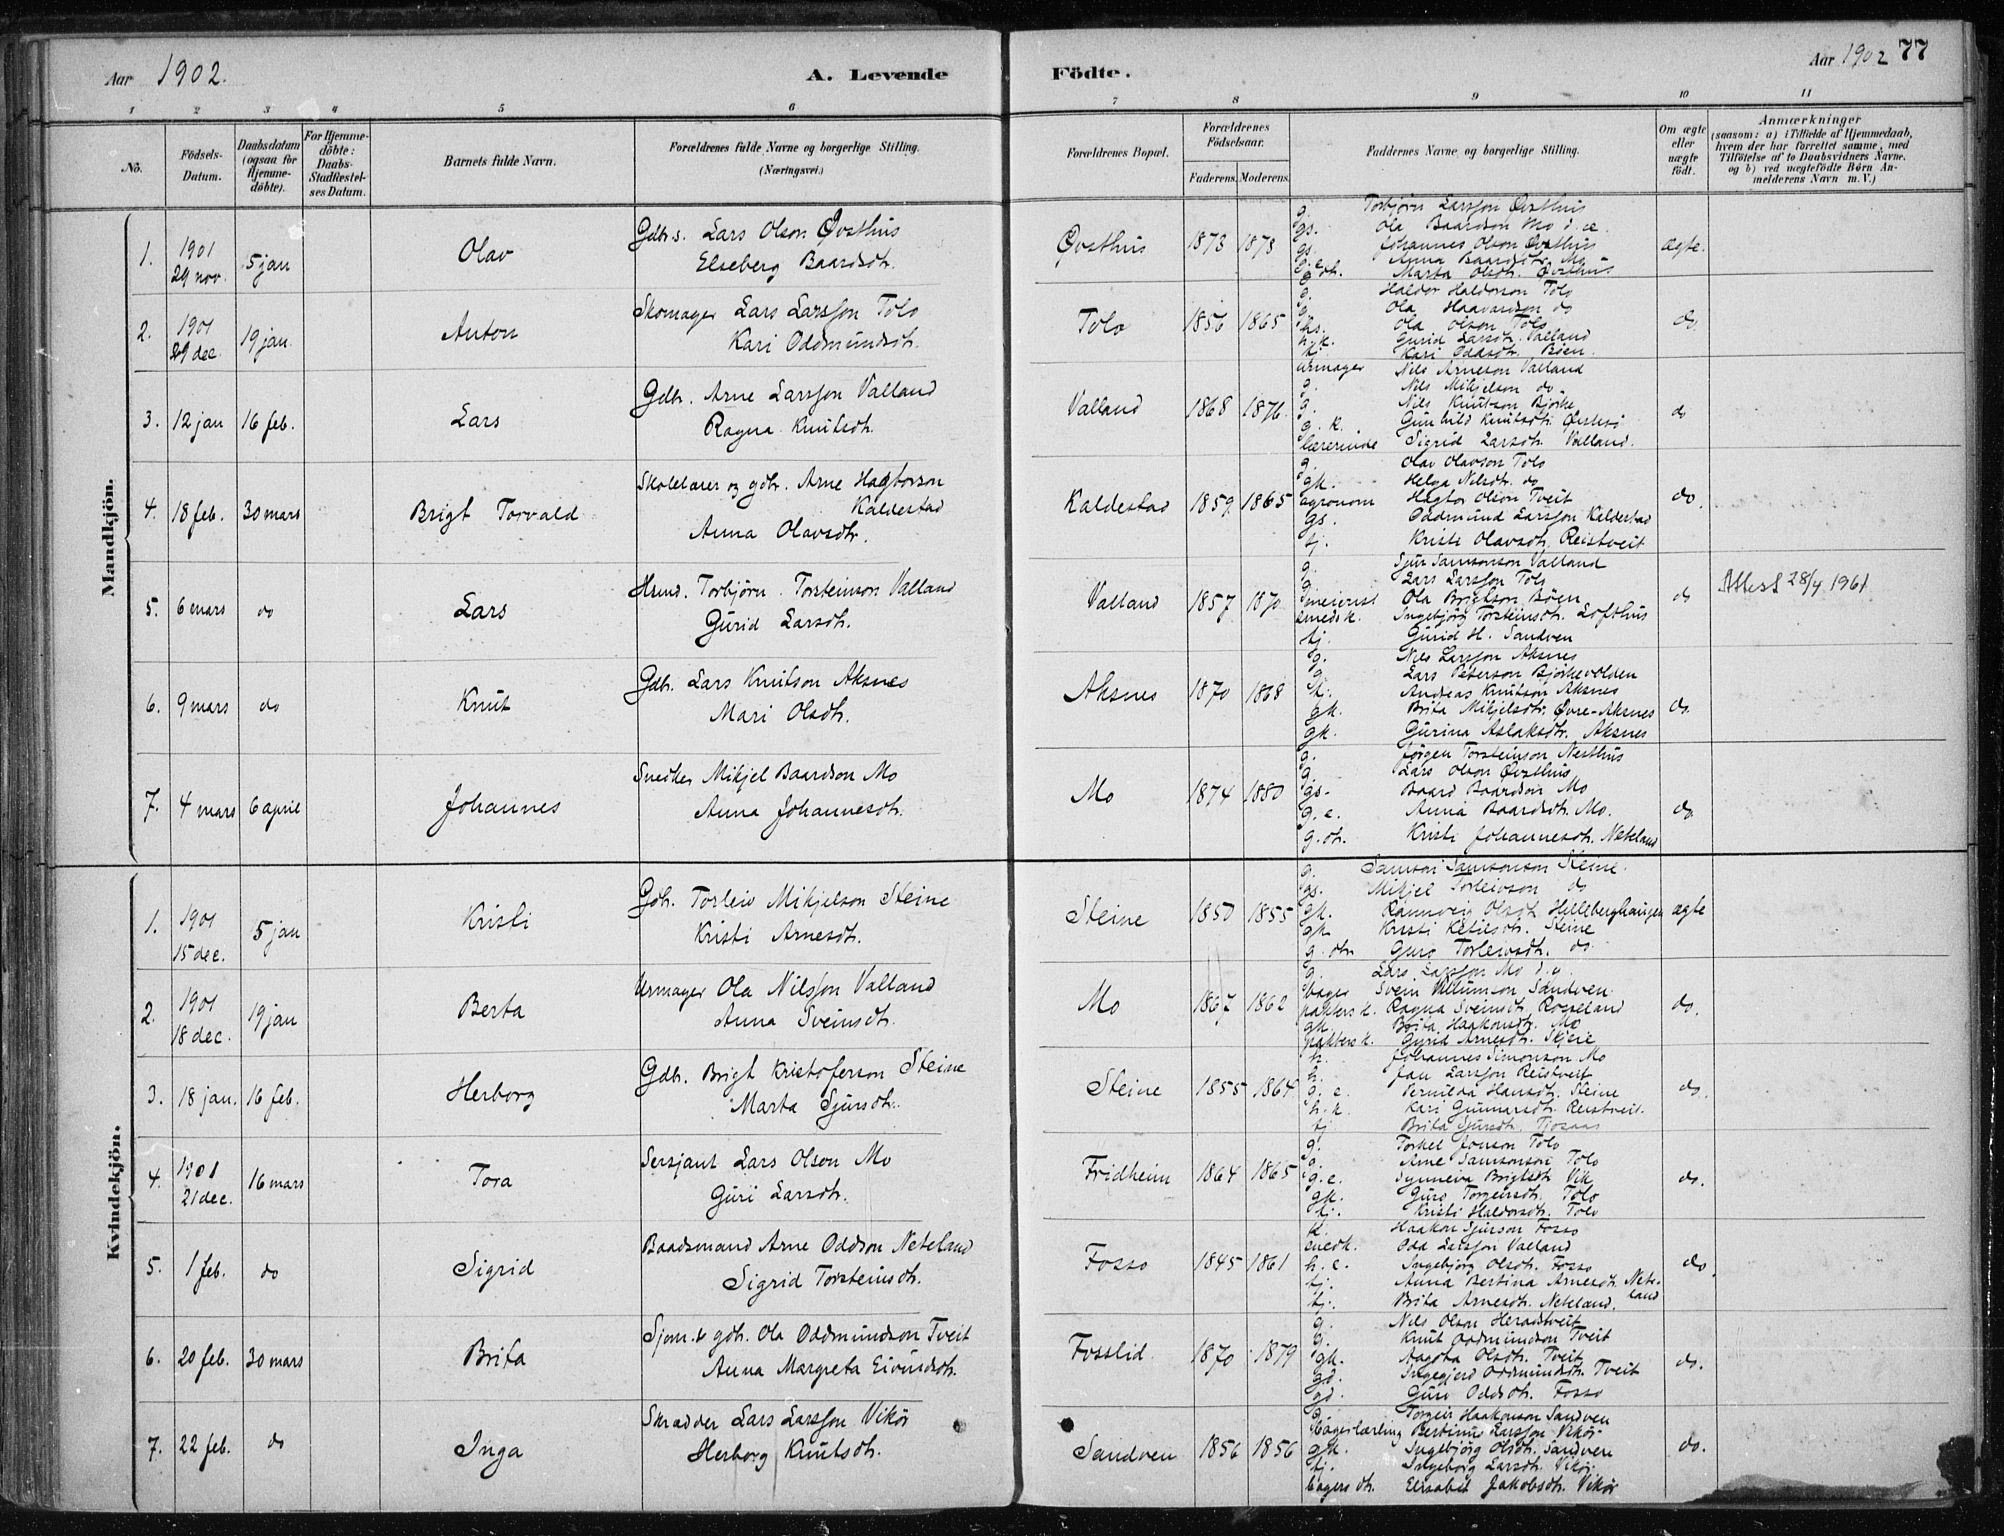 Aar 1902.
A. Levende Födte.
Aar 1902 77
1 2 3 4 5 6 7 8 9 10 11
No.
Födsels-Datum.
Daabsdatum (ogsaa for Hjemme-döbte).
For Hjemme-döbte: Daabs-Stadfæstel-ses Datum.
Barnets fulde Navn.
Forældrenes fulde Navne og borgerlige Stilling. (Næringsvei.)
Forældrenes Bopæl.
Forældrenes Födselsaar.
Faderens. Moderens.
Faddernes Navne og borgerlige Stilling.
Om ægte eller uægte födt.
Anmærkninger
(saasom: a) i Tilfælde af Hjemmedaab,
hvem der har forrettet samme, med
Tilföielse af to Daabsvidners Navne,
og b) ved uægtefödte Börn An-
melderens Navn m. V.)
Mandkjön.
1. 1901 29 nov. 5 jan Olav
Gdbr.s. Lars Olson Øvsthus
Elseberg Baardsdtr.
Øvsthus 1873 1873 ægte.
g. Torbjørn Larsson Øvsthus
gs. Ola Baardson Mo
gs. Johannes Olson Øvsthus
Anna Baardsdtr. Mo
Marta Olsdtr. Øvsthus
2. 1901 29 dec. 19 jan. Anton
Skomager Lars Larsson Tolo
Kari Oddmundsdtr.
Tolo 1856 1865 do.
g. Haldor Haldorson Tolo
g. Ola Haavardson do
hs. Ola Olson Tolo
h.k. Gurid Larsdtr. Valland
Kari Oddsdtr. Bøen.
3. 12 jan 16 feb. Lars
Gdbr. Arne Larsson Valland
Ragna Knutsdtr.
Valland 1868 1876. do
urmager Nils Arneson Valland
g. Nils Mikjelson do.
g. Nils Knutson Bjørke
g.k. Gunhild Knutsdtr.
lærerinde Sigrid Larsdtr. Valland.
4. 18 feb. 30 mars Brigt Torvald
Skolelærer og gdbr. Arne Hagtorson
Kaldestad
Anna Olavsdtr.
Kaldestad 1859 1865 do.
g. Olav Olavson Tolo
gk. Helga Nilsdtr. do
agronom Hagtor Olson Tveit
gs. Oddmund Larsson Kaldestad
tj. Kristi Olavsdtr. Reistveit
5. 6 mars do Lars
Hsmd. Torbjørn Torsteinson Valland
Gurid Larsdtr.
Valland 1857 1870 do Attest 28/4 1961.
g. Sjur Samsonson Valland
g. Lars Larsson Tolo
meierist Ola Brigtson Bøen
smedsk. Ingebjørg Torsteinsdtr. Lofthus
tj. Gurid H. Sandven
6. 9 mars do Knut
Gdbr. Lars Knutson Aksnes
Mari Olsdtr.
Aksnes 1870 1868 do.
g. Nils Larsson Aksnes
g. Lars Peterson Bjørkevolden
Andreas Knutson Aksnes
gk. Brita Mikjelsdtr. Øvre-Aksnes
gk. Gurina Aslaksdtr. Aksnes
7. 4 mars 6 april Johannes
Snedker Mikjel Baardson Mo
Anna Johannesdtr.
Mo 1874 1880 do
g. Jørgen Torsteinson Nesthus
g. Lars Olson Øvsthus
gs. Baard Baardson Mo
g.e. Anna Baardsdtr. Mo.
g.dtr. Kristi Johannesdtr. Neteland
Kvindekjön.
1. 1901 15 dec. 5 jan Kristi
Gdb. Torleiv Mikjelson Steine
Kristi Arnesdtr.
Steine 1850 1855 ægte
g. Samson Samsonson Steine.
gs. Mikjel Torleivson do
gk. Rannveig Olsdt. Helleberghaugen
gk Kristi Ketilsdtr. Steine
g.dtr Guro Torleivsdtr. do.
2. 1901 18 dec. 19 jan Berta
Urmager Ola Nilsson Valland
Anna Sveinsdtr.
Mo 1867 1862 do.
g. Lars Larsson Mo
bager Svein Sandven.
Ragna Sveinsdt. Rosseland
gk. Brita Haakonsdtr. Mo
Gurid Arnesdtr. Skjeie
3. 18 jan. 16 feb. Herborg
Gdb. Brigt Kristoferson Steine
Marta Sjursdtr.
Steine 1855 1864 do.
h. Johannes Simonson Mo
h. Jan Larsson Reistveit
g.e. Pernilda Hansdtr. Steine
h.k. Kari Gunnarsdtr. Reistveit.
tj Brita Sjursdtr. Tjosaas
4. 1901 21 dec. 16 mars Tora
Sersjant Lars Olson Mo
Guri Larsdtr.
Fridheim 1864 1865 do.
g. Torkel Jonson Tolo
g. Arne Samsonson Tolo
g.e. Synneva Brigtsdt. Vik
gk. Guro Torgeirsdtr. Tolo
tj. Kristi Haldorsdtr. Tolo
5. 1 feb. do Sigrid
Baadsmand Arne Oddson Neteland
Sigrid Torsteinsdtr.
Fosso 1845 1861 do.
Haakon Sjurson Fosso
snedk. Odd Larsson Valland
h.e. Ingebjørg Olsdtr. Fosso
tj. Anna Bertina Arnesdtr. Nete-land
tj. Brita Arnesdtr. Neteland.
6. 20 feb. 30 mars Brita
Sjøm. & gdb. Ola Oddmundson Tveit
Anna Margreta Eivindsdtr.
Fosslid. 1870 1879 do.
g. Nils Olson Heradstveit
g. Knut Oddmundson Tveit
gk. Aagota Olsdtr. Tveit
gd. Ingegjerd Oddmundsdtr. Tveit
gd. Guro Oddsdtr. Fosso
7. 22 feb. do Inga
Skrædder Lars Larsson Vikør
Herborg Knutsdtr.
Sandven 1856 1856 do.
g. Torgeir Haakonson Sandven
Bagerlærling Bertinus Larsson Vikør
gk. Ingebjørg Olsdtr. Sandven
tj. Ingeborg Larsdtr. Vikør
bagers dtr. Elisabet Jakobsdtr. Vikør